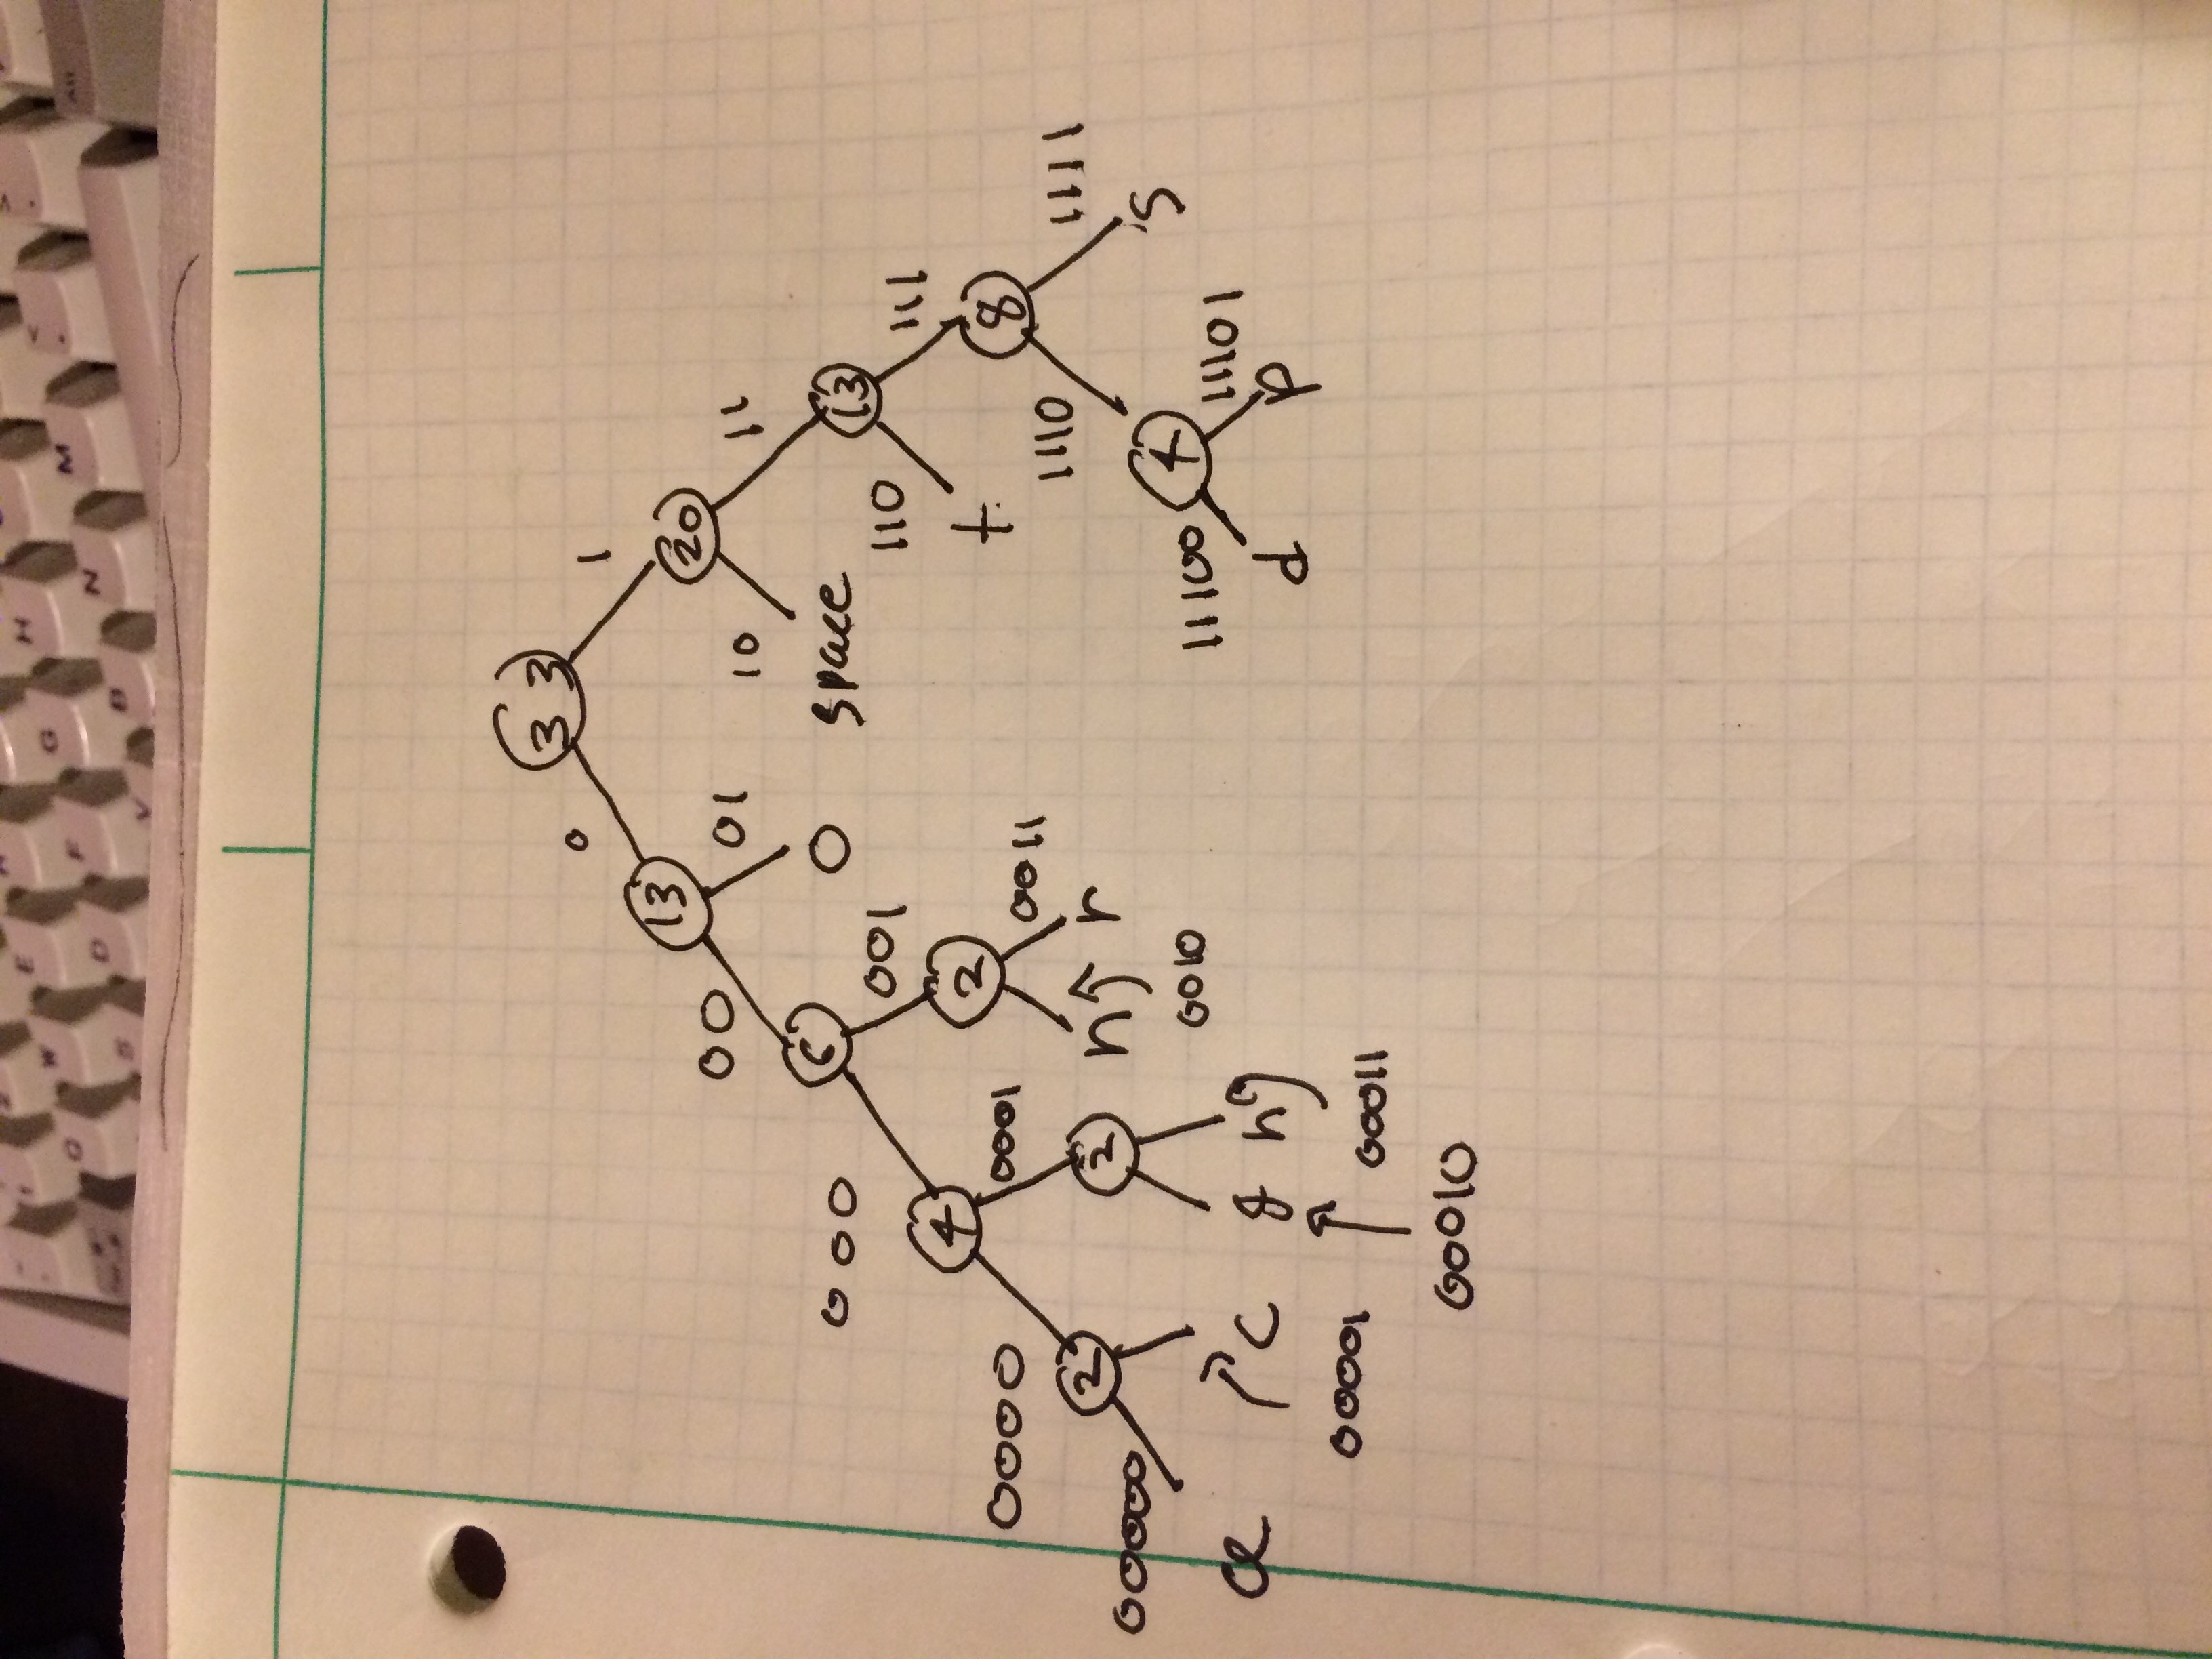 Q W E R G H
S D F V B N M
Alt
33
0 1
13 20
00 01 10 11
6 o space 13
000 001 110 111
4 2 t 8
0000 0001 0011 1110 1111
2 2 n r 4 s
00000 0010 11100 11101
a c g h d p
00001 00011
00010